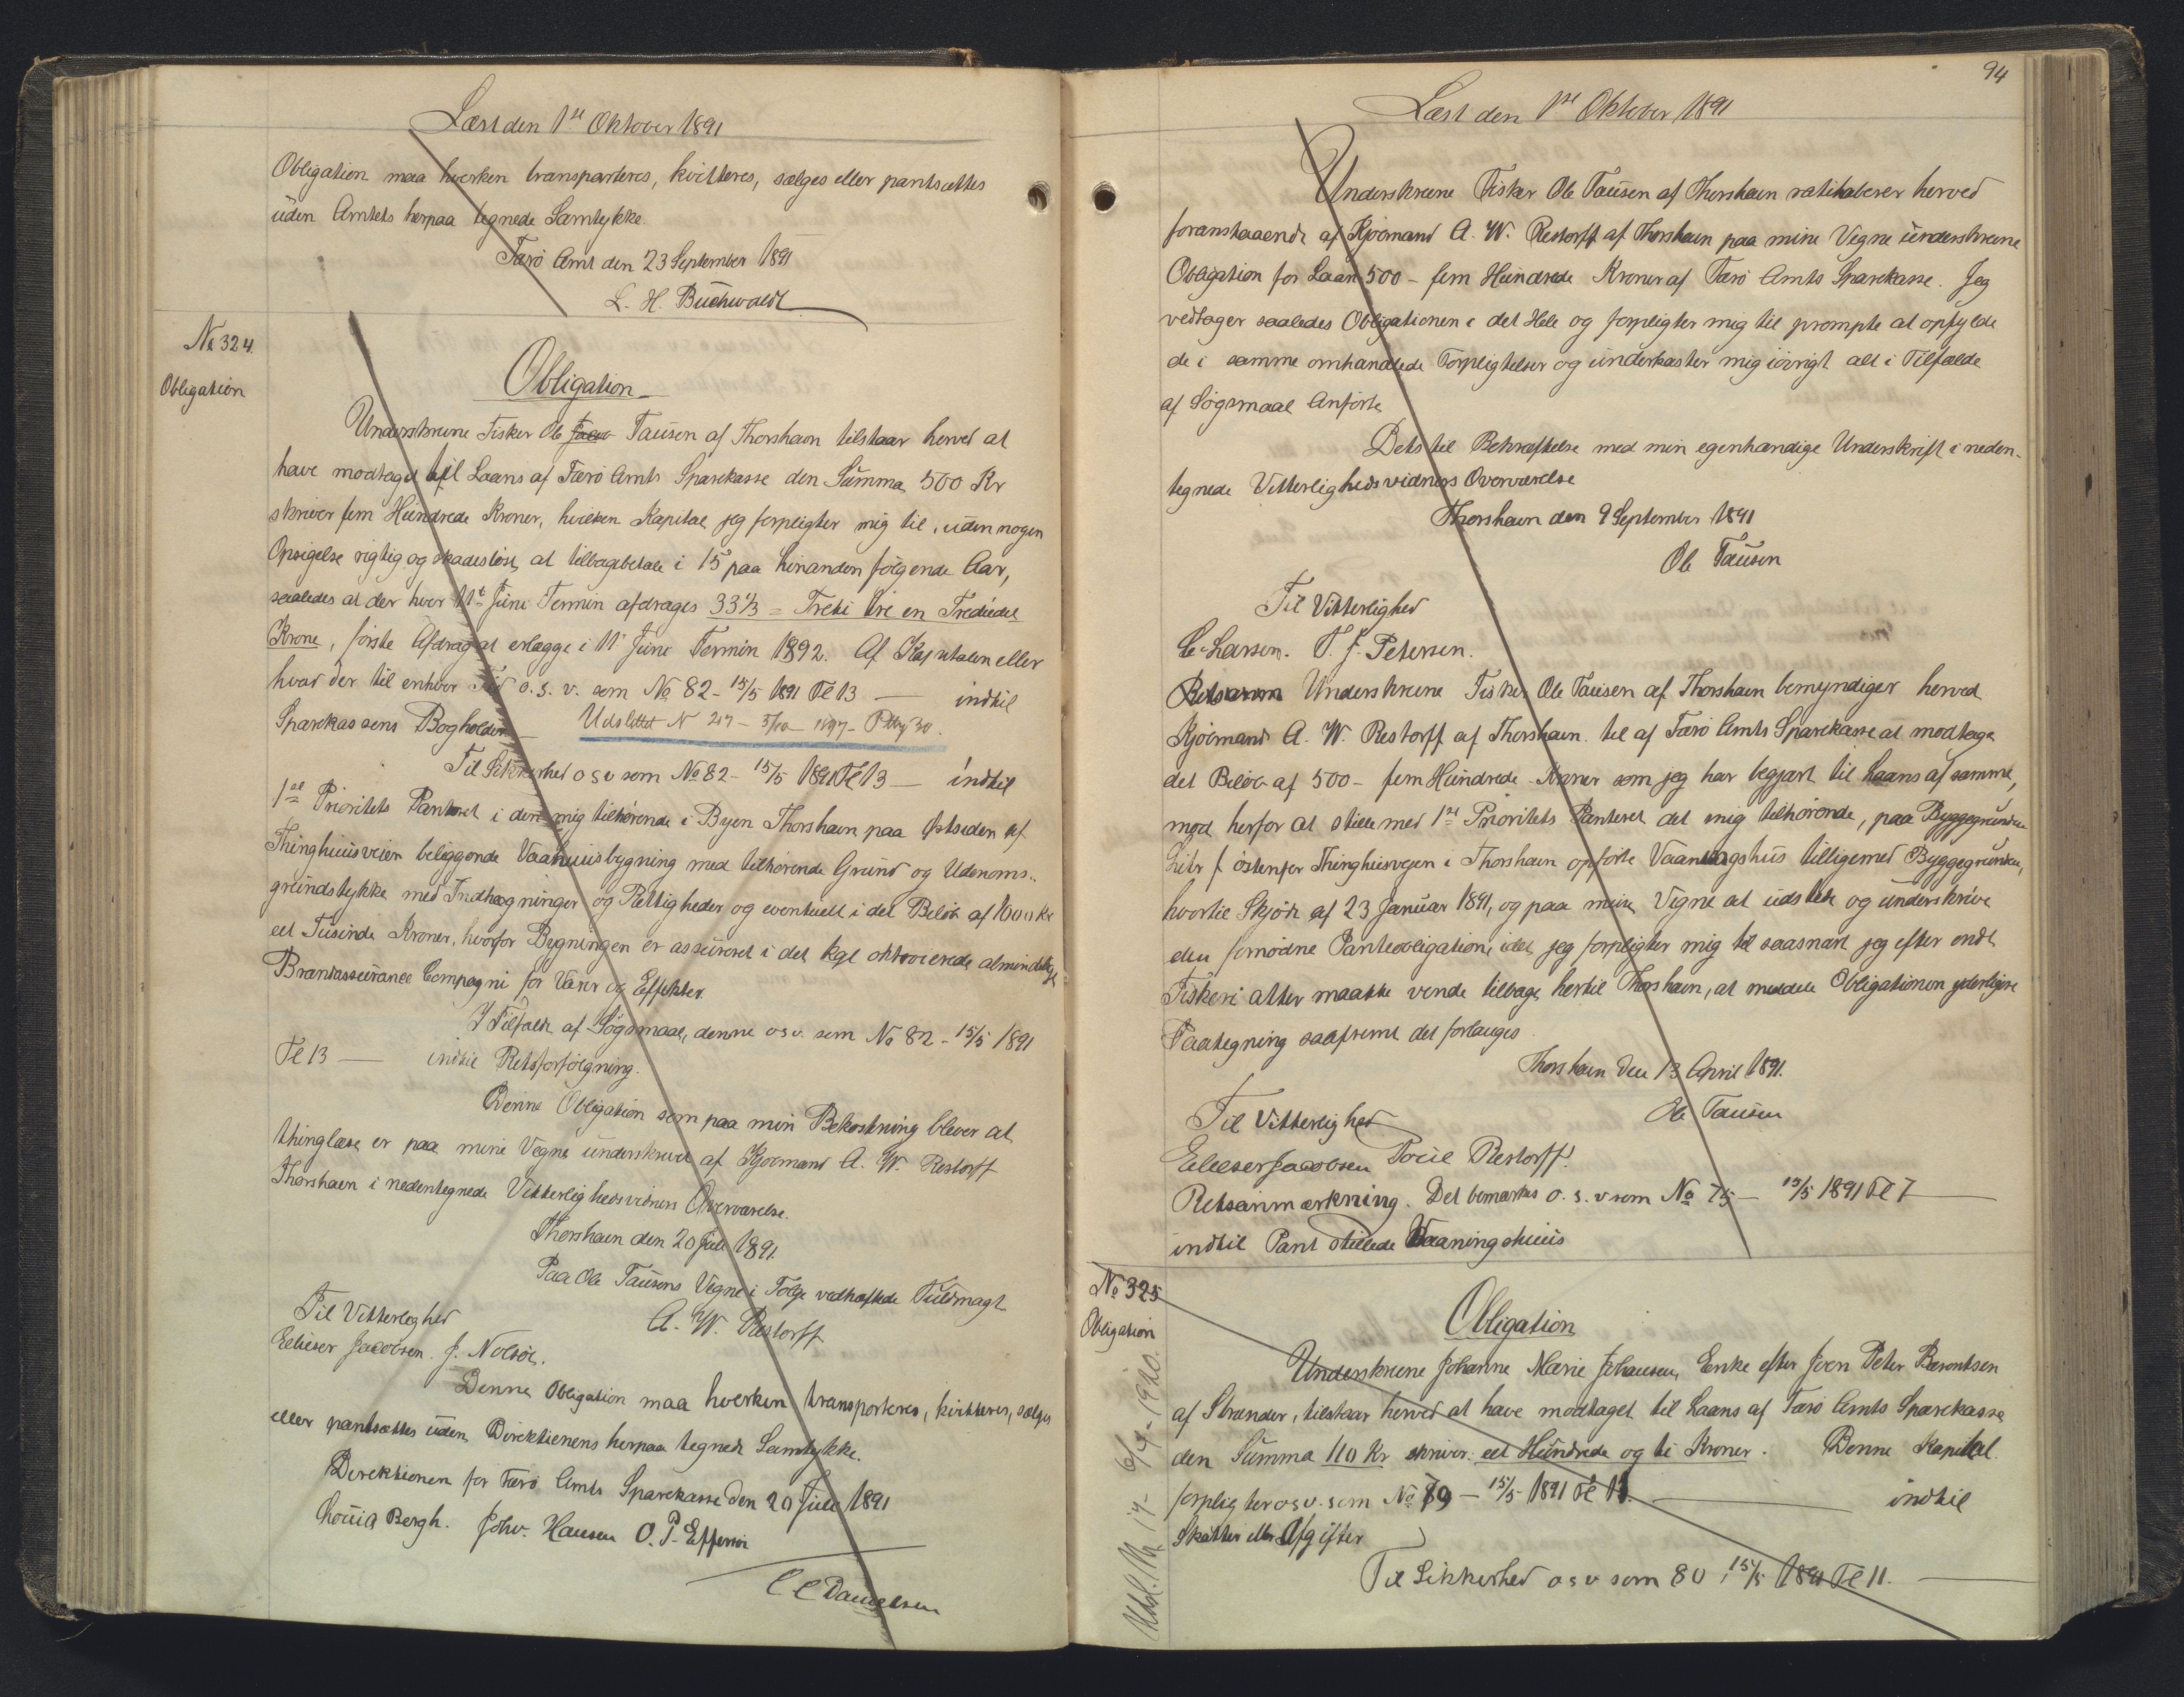 Læst den 1ste Oktober 1891
Obligation maa hverken transporteres, kvitteres, sælges eller pantsættes
uden Amtets herpaa tegnede Samtykke.
Færö Amt den 23 September 1891
L. H. Buchwaldt
No 324.
Obligation
Obligation
Underskrevne Fisker Ole Jacob Tausen af Thorshavn tilstaar herved at
have modtaget til Laans af Færö Amts Sparekasse den Summa 500 Kr
skriver fem Hundrede Kroner, hvilken Kapital jeg forpligter mig til, uden nogen
Opsigelse rigtig og skadeslöst, at tilbagebetale i 15 paa hinanden fölgende Aar,
saaledes at der hver 11te Juni Termin afdrages 33 1/3 = Treti tre en Trediedel
Krone, förste Afdrag at erlægge i 11te Juni Termin 1892. Af Kapitalen eller
hvad der til enhver Tid o. s. v. som No 82 - 15/5 1891 Fl 13 — indtil
Sparekassens Bogholderi — Udslettet N 217 -
Til Sikkerhed o s v som No 82 - 15/5 1891 Fl 13 — indtil
1ste Prioritets Panteret i den mig tilhörende i Byen Thorshavn paa Östsiden af
Thinghuusveien beliggende Vaahuusbygning med tilhörende Grund og Udenoms-
grundstykke med Indhægninger og Rettigheder og eventuelt i det Belöb af 1000 Kr
eet Tusinde Kroner, hvorfor Bygningen er assureret i det kgl oktroierede almindelige
Brandassurance Compagni for Varer og Effekter.
I Tilfælde af Sögsmaal, denne o s v. som No 82 - 15/5 1891
Fl 13 — indtil Retsforfölgning.
Denne Obligation som paa min Bekostning bliver at
thinglæse er paa mine Vegne underskrevet af Kjöbmand A. W. Restorff
Thorshavn i nedentegnede Vitterlighedsvidners Overværelse.
Thorshavn den 20 Juli 1891.
Paa Ole Tausens Vegne i Fölge vedhæftede Fuldmagt
A. W. Restorff
Til Vitterlighed
Elieser Jacobsen. J. Nolsöe.
Denne Obligation maa hverken transporteres, kvitteres, sælges
eller pantsættes uden Direktionens herpaa tegnede Samtykke.
Direktionen for Færö Amts Sparekasse den 20 Juli 1891
Louis Bergh. Johs. Hansen O. P. Effersöe
C C Danielsen
94
Læst den 1ste Oktober 1891
Underskrevne Fisker Ole Tausen af Thorshavn ratihaberer herved
foranstaaende af Kjöbmand A. W. Restorff af Thorshavn paa mine Vegne underskrevne
Obligation for Laan 500 - fem Hundrede Kroner af Færö Amts Sparekasse. Jeg
vedtager saaledes Obligationen i det Hele og forpligter mig til prompte at opfylde
de i samme omhandlede Forpligtelser og underkaster mig iövrigt alt i Tilfælde
af Sögsmaal Anförte
Dets til Bekræftelse med min egenhændige Underskrift i neden-
tegnede Vitterlighedsvidners Overværelse
Thorshavn den 9 September 1891
Ole Tausen
Til Vitterlighed
C. Larsen. T. J. Petersen.
Underskrevne Fisker Ole Tausen af Thorshavn bemyndiger herved
Kjöbmand A. W. Restorff af Thorshavn til af Færö Amts Sparekasse at modtage
det Belöb af 500 - fem Hundrede Kroner som jeg har begjært til Laans af samme,
mod herfor at stille med 1ste Prioritets Panteret det mig tilhörende, paa Byggegrunden
Litr f östenfor Thinghusvejen i Thorshavn opförte Vaaningshus tilligemed Byggegrunden,
hvortil Skjöde af 23 Januar 1891, og paa mine Vegne at udstede og underskrive
den fornödne Panteobligation, idet jeg forpligter mig til saasnart jeg efter endt
Fiskeri atter maatte vende tilbage hertil Thorshavn, at meddele Obligationen yderligere
Paategning saafremt det forlanges
Thorshavn den 13 April 1891.
Ole Tausen
Til Vitterlighed
Elieser Jacobsen Poul Restorff
Retsanmærkning. Det bemærkes o. s. v som No 75 — 15/5 1891 Fl 7 —
indtil Pant stillede Vaaningshuus
No 325
Obligation
Udsl. No 14 - 6/4 - 1920.
Obligation
Underskrevne Johanne Marie Johansen, Enke efter Joen Peter Berentsen
af Strender, tilstaar herved at have modtaget til Laans af Færö Amts Sparekasse
den Summa 110 Kr skriver: eet Hundrede og ti Kroner. Denne Kapital
forpligter o s v. som No 79 — 15/5 1891 Fl 11. — indtil
Skatter eller Afgifter
Til Sikkerhed o s v som 80, 15/5 1891 Fl 11. —